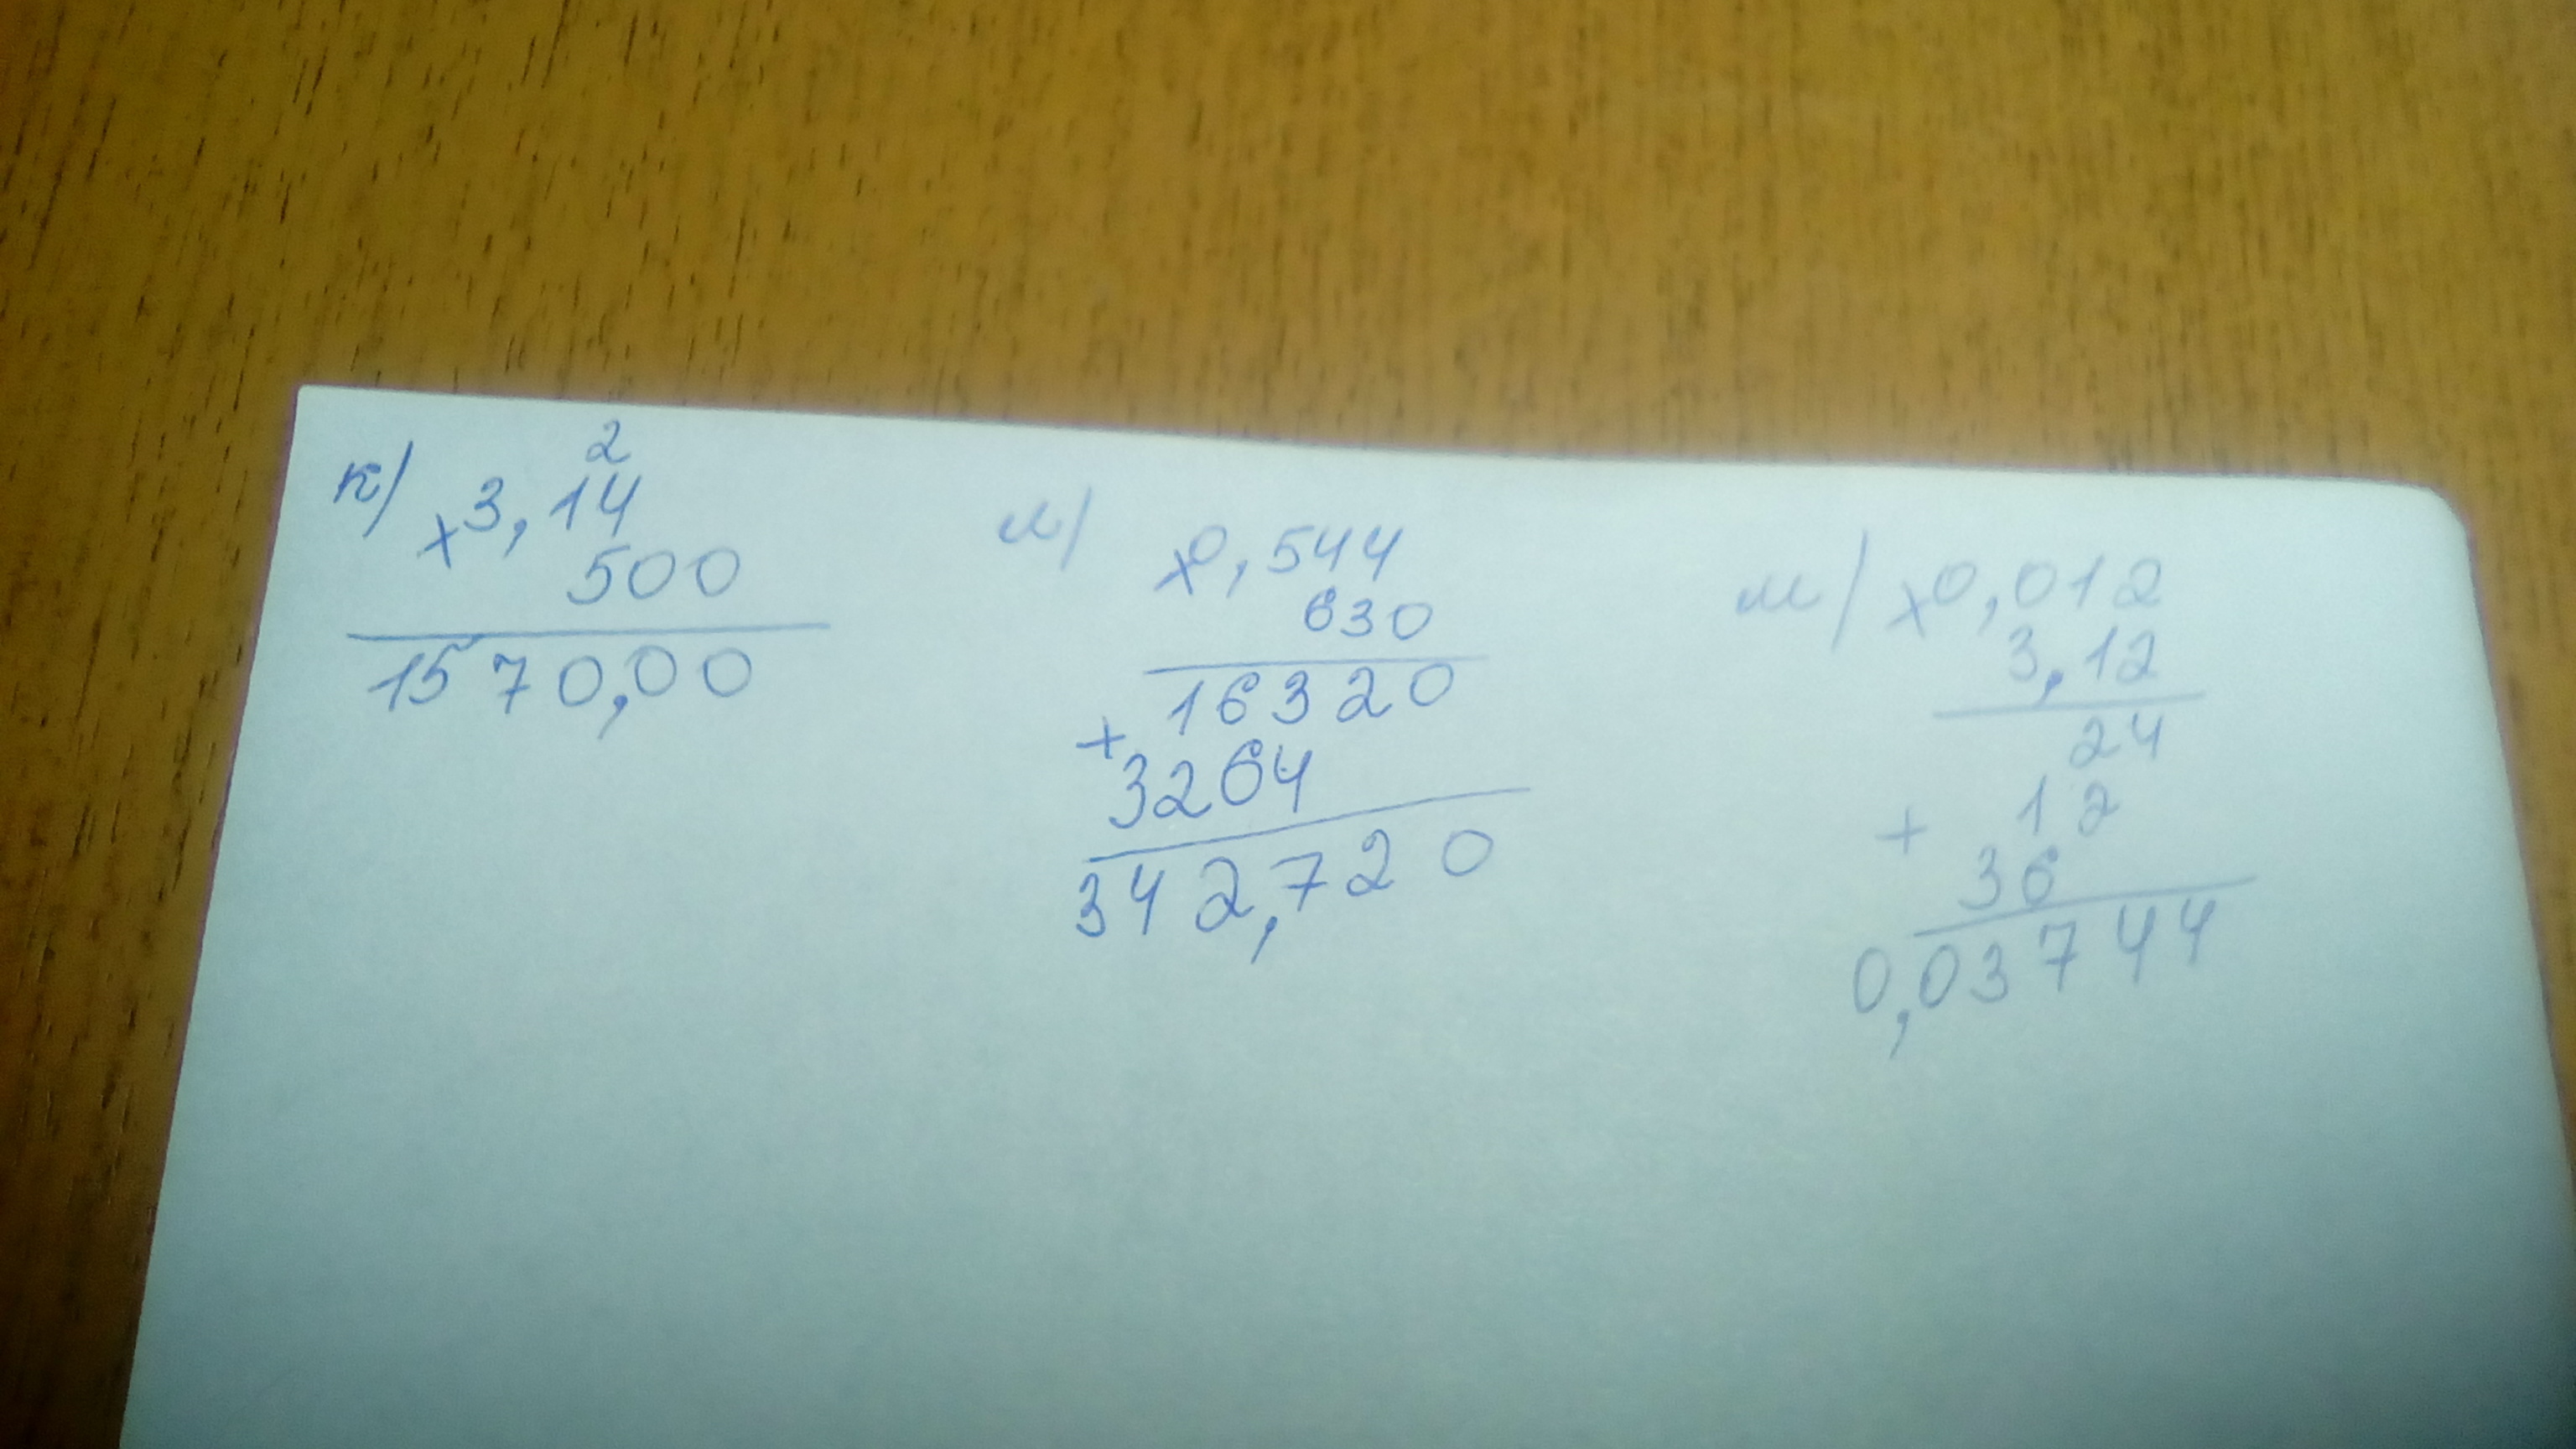 к) 2
× 3,14
500
1570,00
л) × 0,544
630
16320
+ 3264
342,720
м) × 0,012
3,12
24
+ 12
36
0,03744